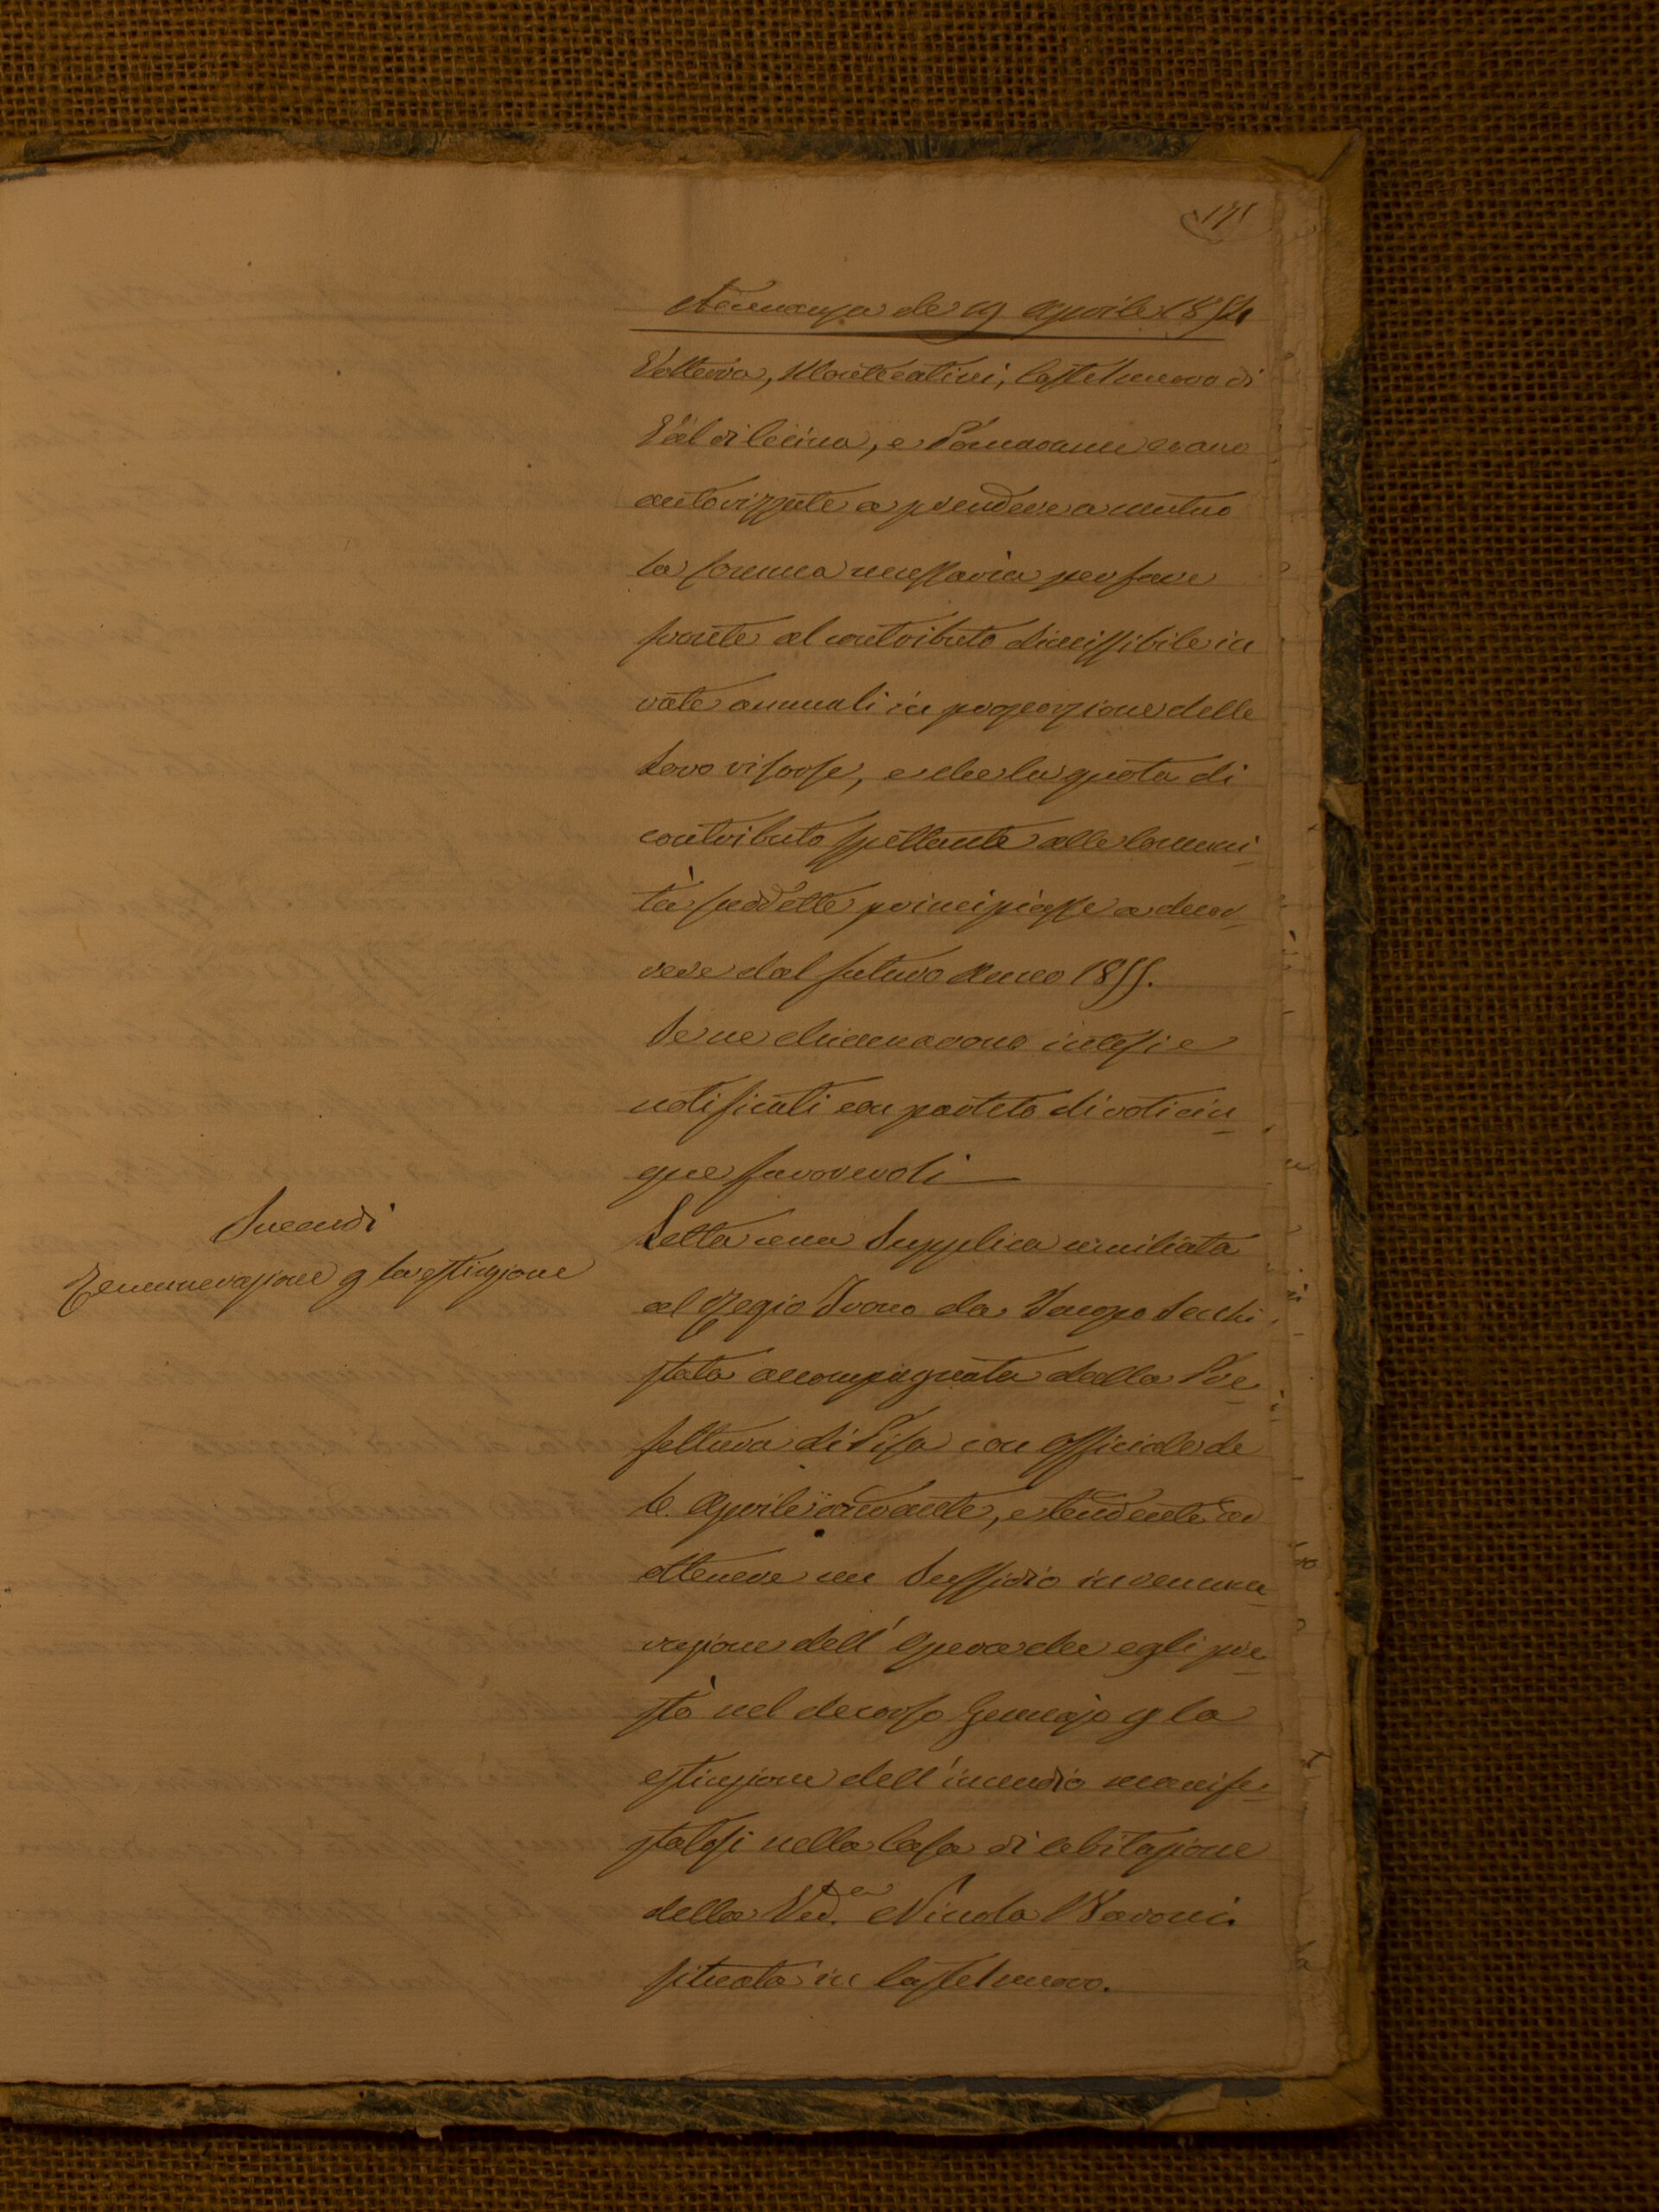 171
Adunanza de 19 Aprile 1854
Volterra, Montecatini, Castelnuovo di
Val di Cecina, e Pomarance erano
autorizzate a prendere a mutuo
la somma necessaria per fare
fronte al contributo dimissibile in
rate annuali in proporzione delle
loro risorse, e che la quota di
contributo spettante alle Comuni_
tà suddette principiasse a decor_
rere dal futuro Anno 1855.
Se ne chiamarono intesi e
notificati con partito di voti cin_
que favorevoli
Incendi
Remunerazione p la estinzione
Letta una Supplica umiliata
al Regio Trono da Secchi
stata accompagnata dalla Pre_
fettura di Pisa con Officiale de
6. Aprile andante, e tendente ad
ottenere un Sussidio in remune_
razione dell' Opera che egli pre_
stò nel decorso Gennajo p la
estinzione dell' incendio manife_
statosi nella Casa di abitazione
della Ved.ª Niccola Baroni
situata in Castelnuovo.